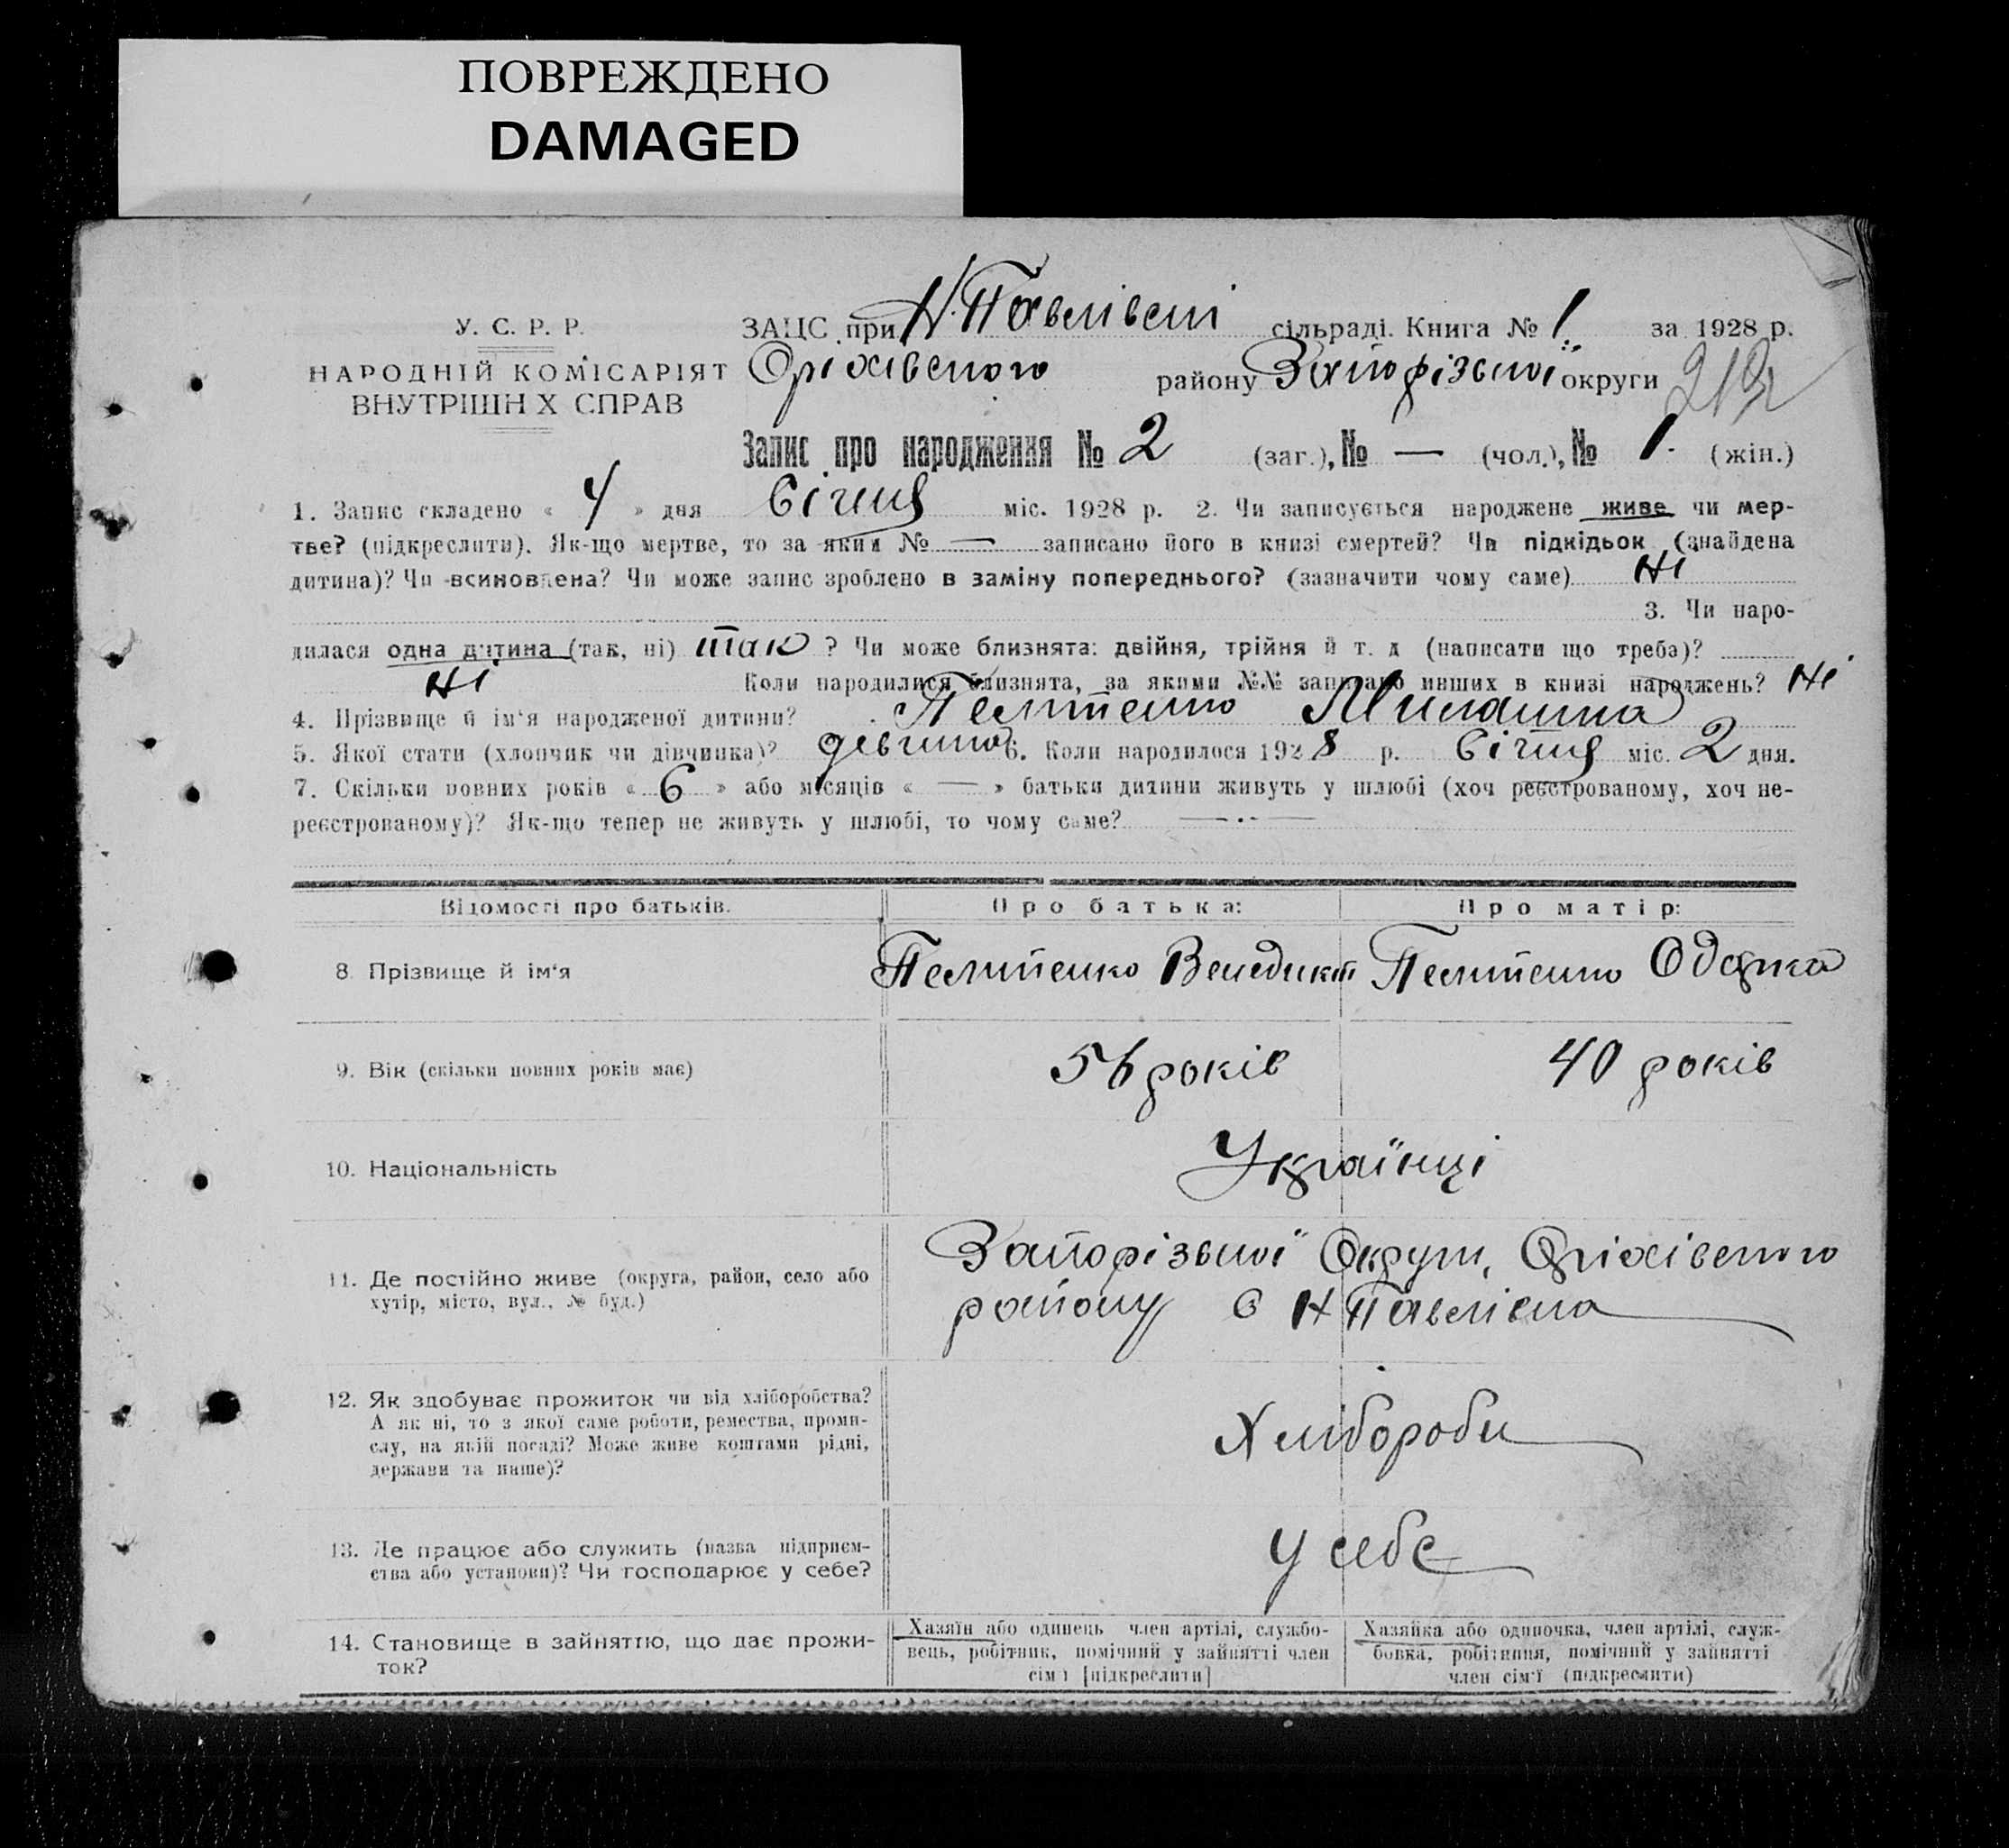 ПОВРЕЖДЕНО
DAMAGED
У. С. Р. Р.
НАРОДНІЙ КОМІСАРІЯТ
ВНУТРІШН Х СПРАВ
ЗАЦС при Н.Павлівскі сільраді. Книга № 1 за 1928 р.
Оріхівського району Запорізької округи
Запис про народження № 2 (заг.), № — (чол.), № 1. (жін.)
1. Запис складено « 4 » дня Січня міс. 1928 р. 2. Чи записується народжене живе чи мер-
тве? (підкреслити). Як-що мертве, то за яким № — записано його в книзі смертей? Чи підкідьок (знайдена
дитина)? Чи всиновлена? Чи може запис зроблено в заміну попереднього? (зазначити чому саме) Ні
3. Чи наро-
дилася одна дитина (так, ні) так ? Чи може близнята: двійня, трійня й т. д (написати що треба)?
Ні Коли народилися близнята, за якими №№ записано инших в книзі народжень? Ні
4. Прізвище й ім'я народженої дитини?
5. Якої стати (хлопчик чи дівчинка)? дівчина 6. Коли народилося 1928 р. Січня міс. 2 дня.
7. Скільки повних років « 6 » або місяців « — » батьки дитини живуть у шлюбі (хоч реєстрованому, хоч не-
реєстрованому)? Як-що тепер не живуть у шлюбі, то чому саме? — · —
Відомості про батьків. Про батька: Про матір:
8. Прізвище й ім'я Венедикт Одарка
9. Вік (скільки повних років має) 56 років 40 років
10. Національність Українці
11. Де постійно живе (округа, район, село або
хутір, місто, вул., № буд.)
Запорізької Округи, Оріхівського
району с Н Павлівка
12. Як здобуває прожиток чи від хліборобства?
А як ні, то з якої саме роботи, ремества, проми-
слу, на якій посаді? Може живе коштами рідні,
держави та инше)?
Хлібороби
13. Де працює або служить (назва підприєм-
ства або установи)? Чи господарює у себе?
У себе
14. Становище в зайняттю, що дає прожи-
ток?
Хазяїн або одинець член артілі, службо-
вець, робітник, помічний у зайнятті член
сім ї [підкреслити]
Хазяйка або одиночка, член артілі, служ-
бовка, робітниця, помічний у зайнятті
член сім'ї (підкреслити)